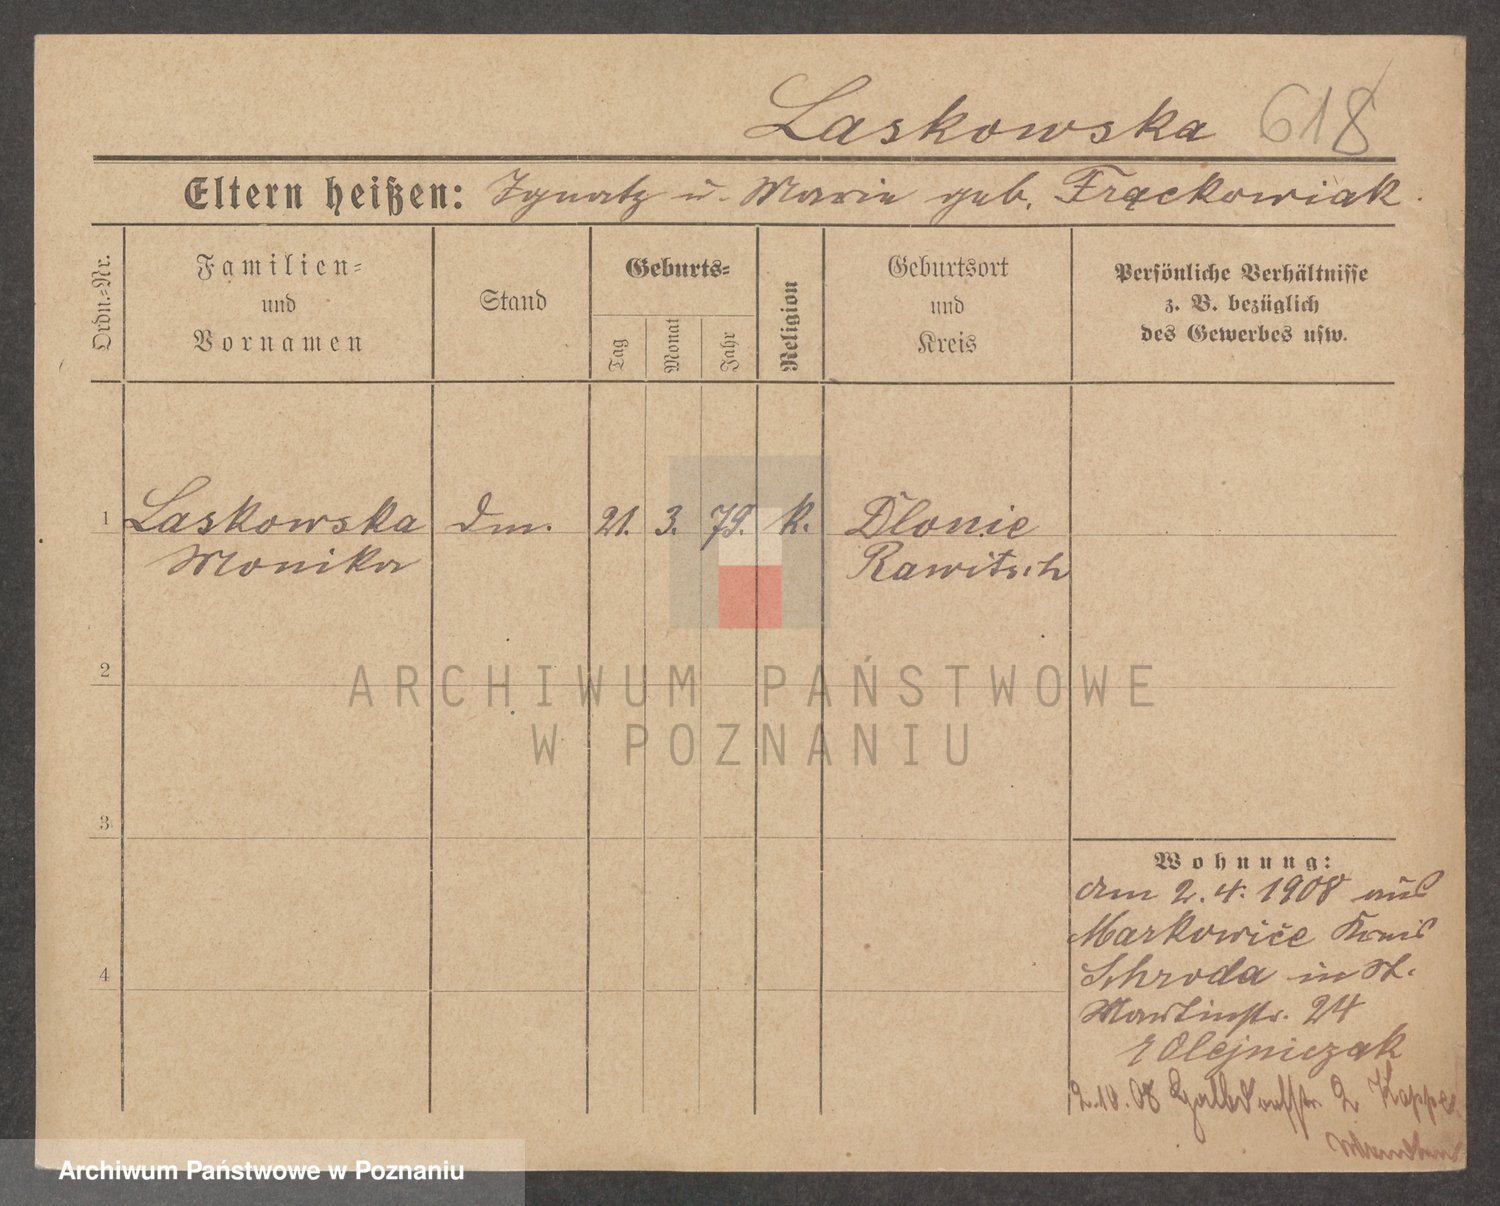 Laskowska 618
Eltern heißen: Ignatz u. Marie geb. Frąckowiak.
Ordn.-Nr.
Familien-
und
Vornamen
Stand
Geburts-
Tag
Monat
Jahr
Religion
Geburtsort
und
Kreis
Persönliche Verhältnisse
z. B. bezüglich
des Gewerbes usw.
1 Laskowska 21. 3. 79. k. Dlonie
Monika Rawitsch
2
ARCHIWUM PAŃSTWOWE
W POZNANIU
3
4
Wohnung:
am 2. 4. 1908 aus
Markowice Kreis
Schroda in St.
Martinstr. 24
Olejniczak
2.10.08 2
Archiwum Państwowe w Poznaniu